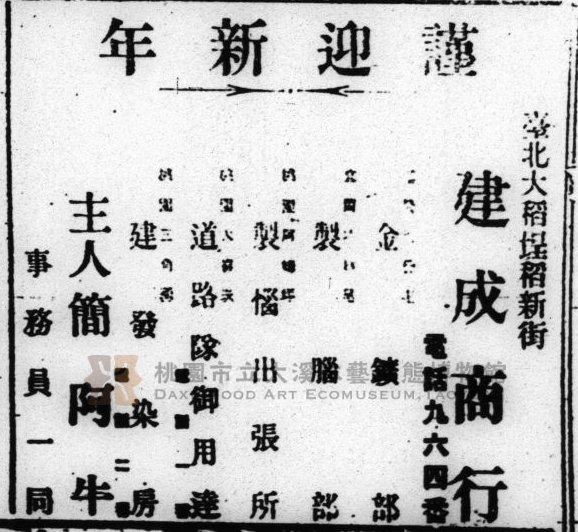 謹迎新年
臺北大稻埕稻新街
建成商行
電話九六四番
金鑛部
製腦部
製惱出張所
道路隊御用達
建發染房
主人簡阿牛
事務員一同
桃園市立大溪木藝生態博物館
DAXI WOOD ART ECOMUSEUM, TAO